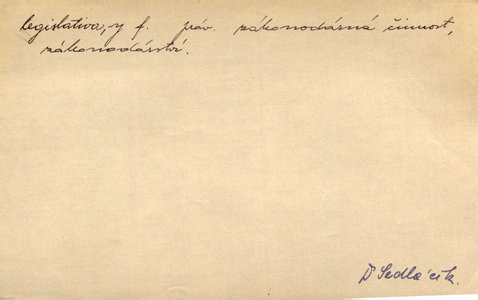 legislativa, -y f. práv. zákonodárná činnost,
zákonodárství.
Dr Sedláček.